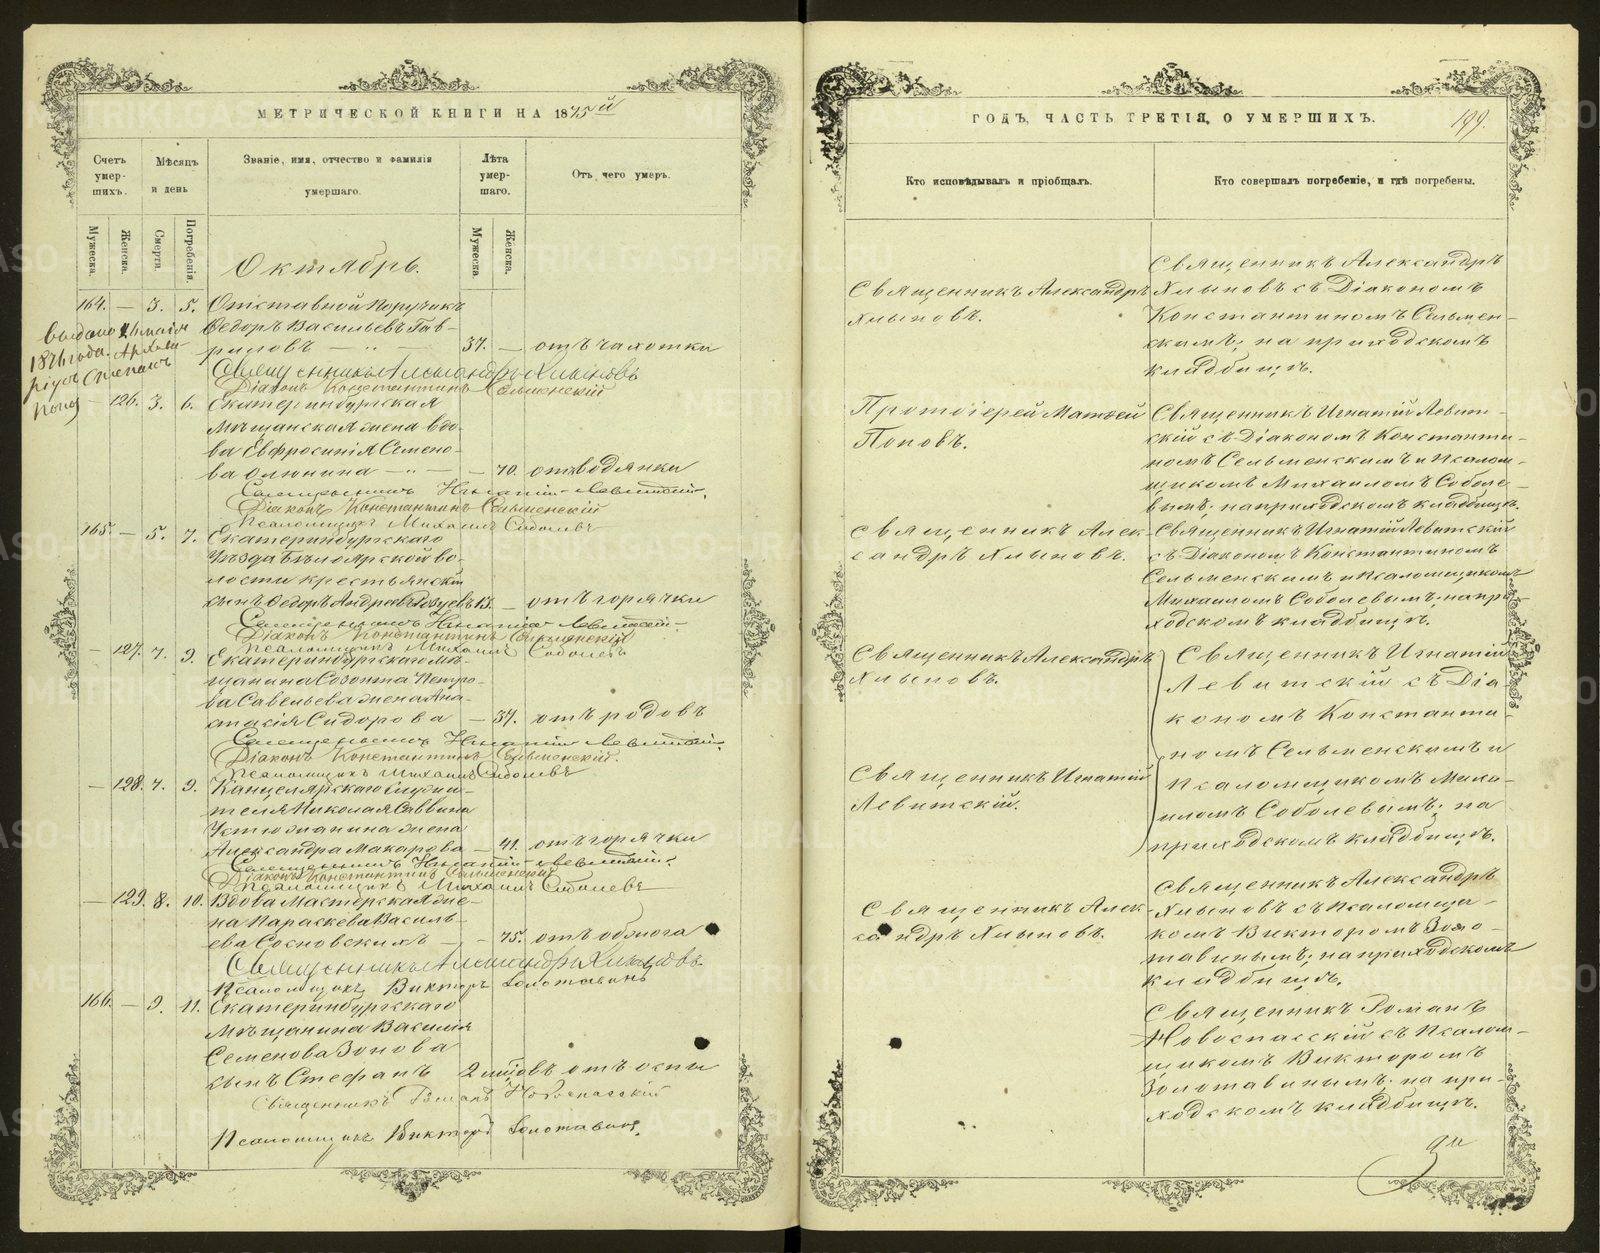 МЕТРИЧЕСКОЙ КНИГИ НА 1875й
Счетъ умер-шихъ.
Мѣсяцъ и день
Званіе, имя, отчество и фамилія умершаго.
Лѣта умер-шаго.
Отъ чего умеръ.
Мужеска.
Женска.
Смерти.
Погребенія.
Мужеска.
Женска.
Октябрь.
164. — 3. 5. Отставной Поручикъ
Ѳедоръ Васильевъ Гав-
риловъ — 37. — отъ чахотки
Выдано
1876 года.
Священникъ Александръ Хлыновъ
Діаконъ Константинъ Сельменскій
— 126. 3. 6. Екатеринбургская
Мѣщанская жена вдо-
ва Евфросинія Семено-
ва — 70. отъ водянки
Священникъ Игнатій Левитскій.
Діаконъ Константинъ Сельменскій
Псаломщикъ Михаилъ Соболевъ
165. — 5. 7. Екатеринбургскаго
Уѣзда Бѣлоярской во-
лости крестьянскій
сынъ Ѳедоръ Андреевъ 13. — отъ горячки
Священникъ Игнатій Левитскій.
Діаконъ Константинъ Сельменскій
Псаломщикъ Михаилъ Соболевъ
— 127. 7. 9. Екатеринбургскаго мѣ-
щанина Созонта Петро-
ва Савельева жена Ана-
стасія Сидорова — 37. отъ родовъ
Священникъ Игнатій Левитскій.
Діаконъ Константинъ Сельменскій.
Псаломщикъ Михаилъ Соболевъ
— 128. 7. 9. Канцелярскаго служи-
теля Николая Саввина
Устюжанина жена
Александра Макарова — 41. отъ горячки
Священникъ Игнатій Левитскій.
Діаконъ Константинъ Сельменскій
Псаломщикъ Михаилъ Соболевъ
— 129. 8. 10. Вдова Мастерская же-
на Параскева Василь-
ева Сосновскихъ — 75. отъ
Священникъ Александръ Хлыновъ
Псаломщикъ Викторъ Золотавинъ
166. — 9. 11. Екатеринбургскаго
Мѣщанина Василія
Семенова Зонова
сынъ Стефанъ 2 отъ оспы
Священникъ Романъ Новоспасскій
Псаломщикъ Викторъ Золотавинъ.
ГОДЪ, ЧАСТЬ ТРЕТІЯ, О УМЕРШИХЪ.
199.
Кто исповѣдывалъ и пріобщалъ.
Кто совершалъ погребеніе, и гдѣ погребены.
Священникъ Александръ
Хлыновъ.
Священникъ Александръ
Хлыновъ съ Діакономъ
Константиномъ Сельмен-
скимъ; на приходскомъ
кладбищѣ.
Протоіерей Матѳей
Поповъ.
Священникъ Игнатій Левит-
скій съ Діакономъ Константи-
номъ Сельменскимъ и Псалом-
щикомъ Михаиломъ Соболе-
вымъ; на приходскомъ кладбищѣ.
Священникъ Алек-
сандръ Хлыновъ.
Священникъ Игнатій Левитскій
съ Діакономъ Константиномъ
Сельменскимъ и Псаломщикомъ
Михаиломъ Соболевымъ; на при-
ходскомъ кладбищѣ.
Священникъ Александръ
Хлыновъ.
Священникъ Игнатій
Левитскій.
Священникъ Игнатій
Левитскій съ Діа-
кономъ Константи-
номъ Сельменскимъ и
Псаломщикомъ Миха-
иломъ Соболевымъ; на
приходскомъ кладбищѣ.
Священникъ Алек-
сандръ Хлыновъ.
Священникъ Александръ
Хлыновъ съ Псаломщи-
комъ Викторомъ Золо-
тавинымъ; на приходскомъ
кладбищѣ.
Священникъ Романъ
Новоспасскій съ Псалом-
щикомъ Викторомъ
Золотавинымъ; на при-
ходскомъ кладбищѣ.